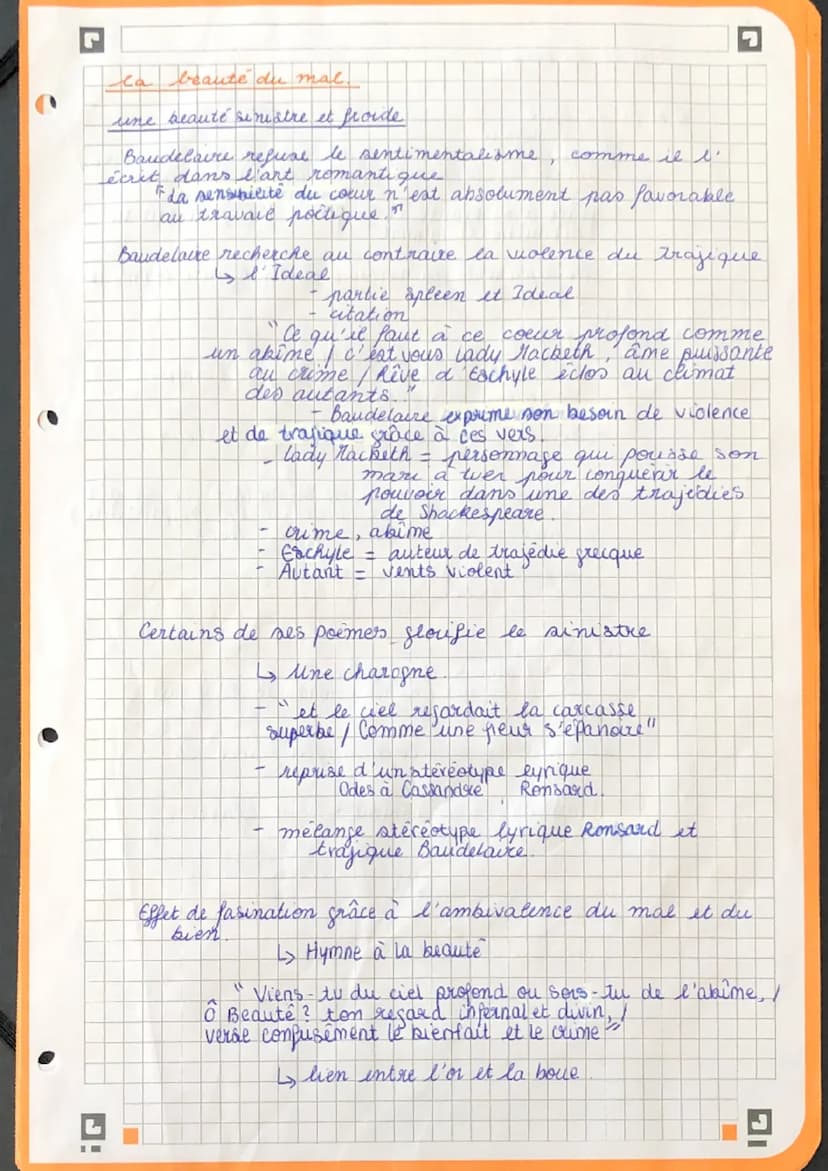 La beauté du mal.
une beauté sinistre et froide
Baudelaire refuse le sentimentalisme, comme il l'
écrit dans l'art romantique
"La sensibilité du cœur n'est absolument pas favorable
au travail poétique."
Baudelaire recherche au contraire la violence du Trajique
↳ l'Ideal
- partie Spleen et Ideal
- citation
"Ce qu'il faut à ce coeur profond comme
un abîme / c'est vous Lady Macbeth, âme puissante
au crime / Rêve d'Eschyle éclos au climat
des autants."
- Baudelaire exprime son besoin de violence
et de trajique grâce à ces vers.
- Lady Macbeth = personnage qui pousse son
mari à tuer pour conquérir le
pouvoir dans une des trajédies
de Shackespeare.
- crime, abîme
- Eschyle = auteur de trajédie grecque
- Autant = vents violent
Certains de ses poèmes glorifie le sinistre
↳ Une charogne.
- "et le ciel regardait la carcasse
superbe / Comme une fleur s'épanouir"
- reprise d'un stéréotype lyrique
Odes à Cassandre Ronsard.
- mélange stéréotype lyrique Ronsard et
trajique Baudelaire.
Effet de fasination grâce à l'ambivalence du mal et du
bien.
↳ Hymne à la beauté
"Viens-tu du ciel profond ou sors-tu de l'abîme, /
Ô Beauté ? ton regard infernal et divin, /
verse confusément le bienfait et le crime"
↳ lien entre l'or et la boue.